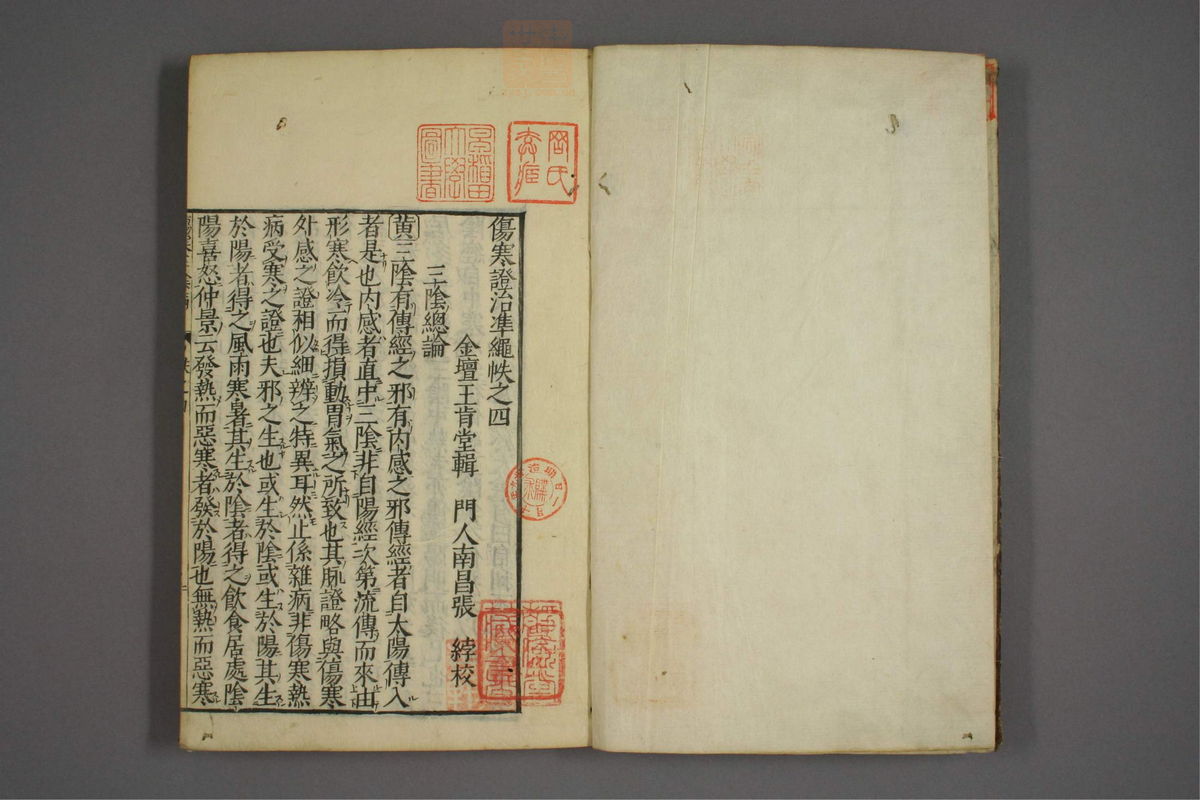 傷寒證治準繩帙之四
金壇王肯堂輯 門人南昌張 綍校
三陰總論
黄三陰有傳經之邪有内感之邪傳經者自太陽傳入
者是也内感者直中三陰非自陽經次第流傳而來由
形寒飲冷而得損動胃氣之所致也其脉證略與傷寒
外感之證相似細辨之特異耳然止係雜病非傷寒熱
病受寒之證也夫邪之生也或生於陰或生於陽其生
於陽者得之風雨寒暑其生於陰者得之飲食居處陰
陽喜怒仲景云發熱而惡寒者發於陽也無熱而惡寒
早稻田大學圖書